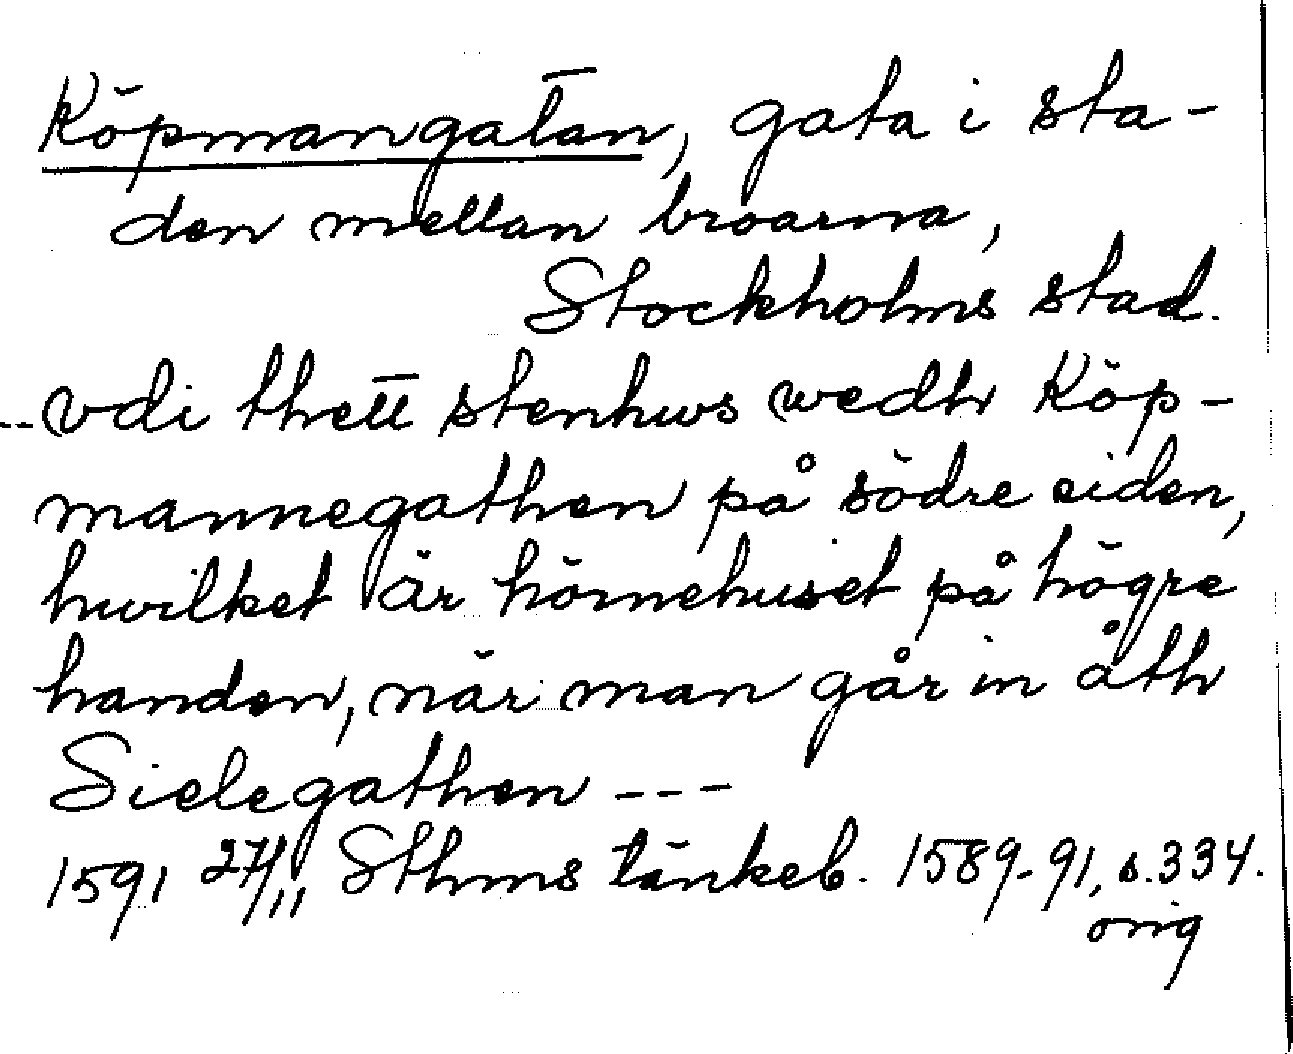 Köpmangatan, gata i sta-
den mellan broarna,
Stockholms stad.
--vdi thett stenhws wedh Köp-
mannegathen på södre siden,
hwilket är hörnehuset på högre
handen, när man går in åth
Sielegathen ---
1591 27/11 Sthms tänkeb. 1589-91, s. 334.
orig